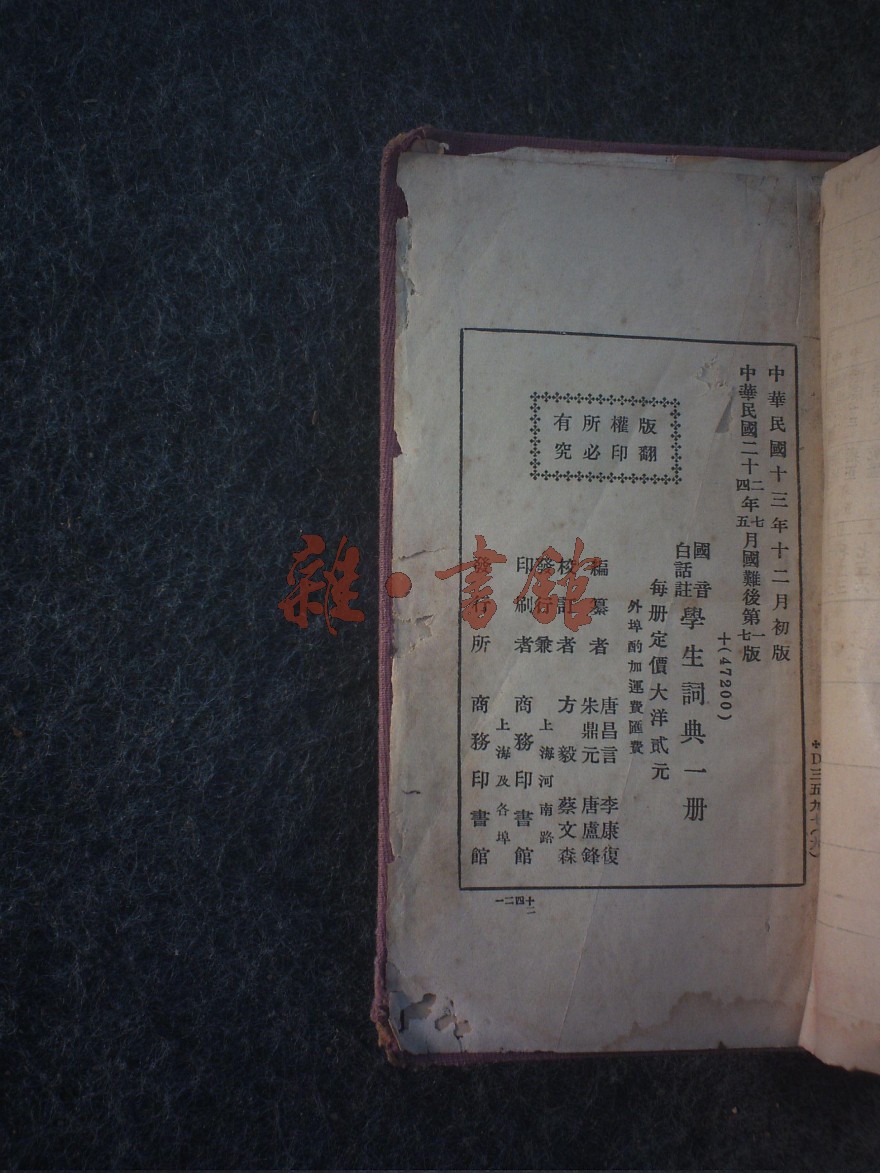 中華民國十三年十二月初版
中華民國二十二年七月國難後第一版
中華民國二十四年五月國難後第七版
十(47200)
國音白話註學生詞典一册
每册定價大洋貳元
外埠酌加運費匯費
編纂者 唐昌言 李康復 朱鼎元 唐盧鋒
校訂者 方毅 蔡文森
發行兼印刷者 上海河南路 商務印書館
發行所 上海及各埠 商務印書館
版權所有
翻印必究
雜·書館